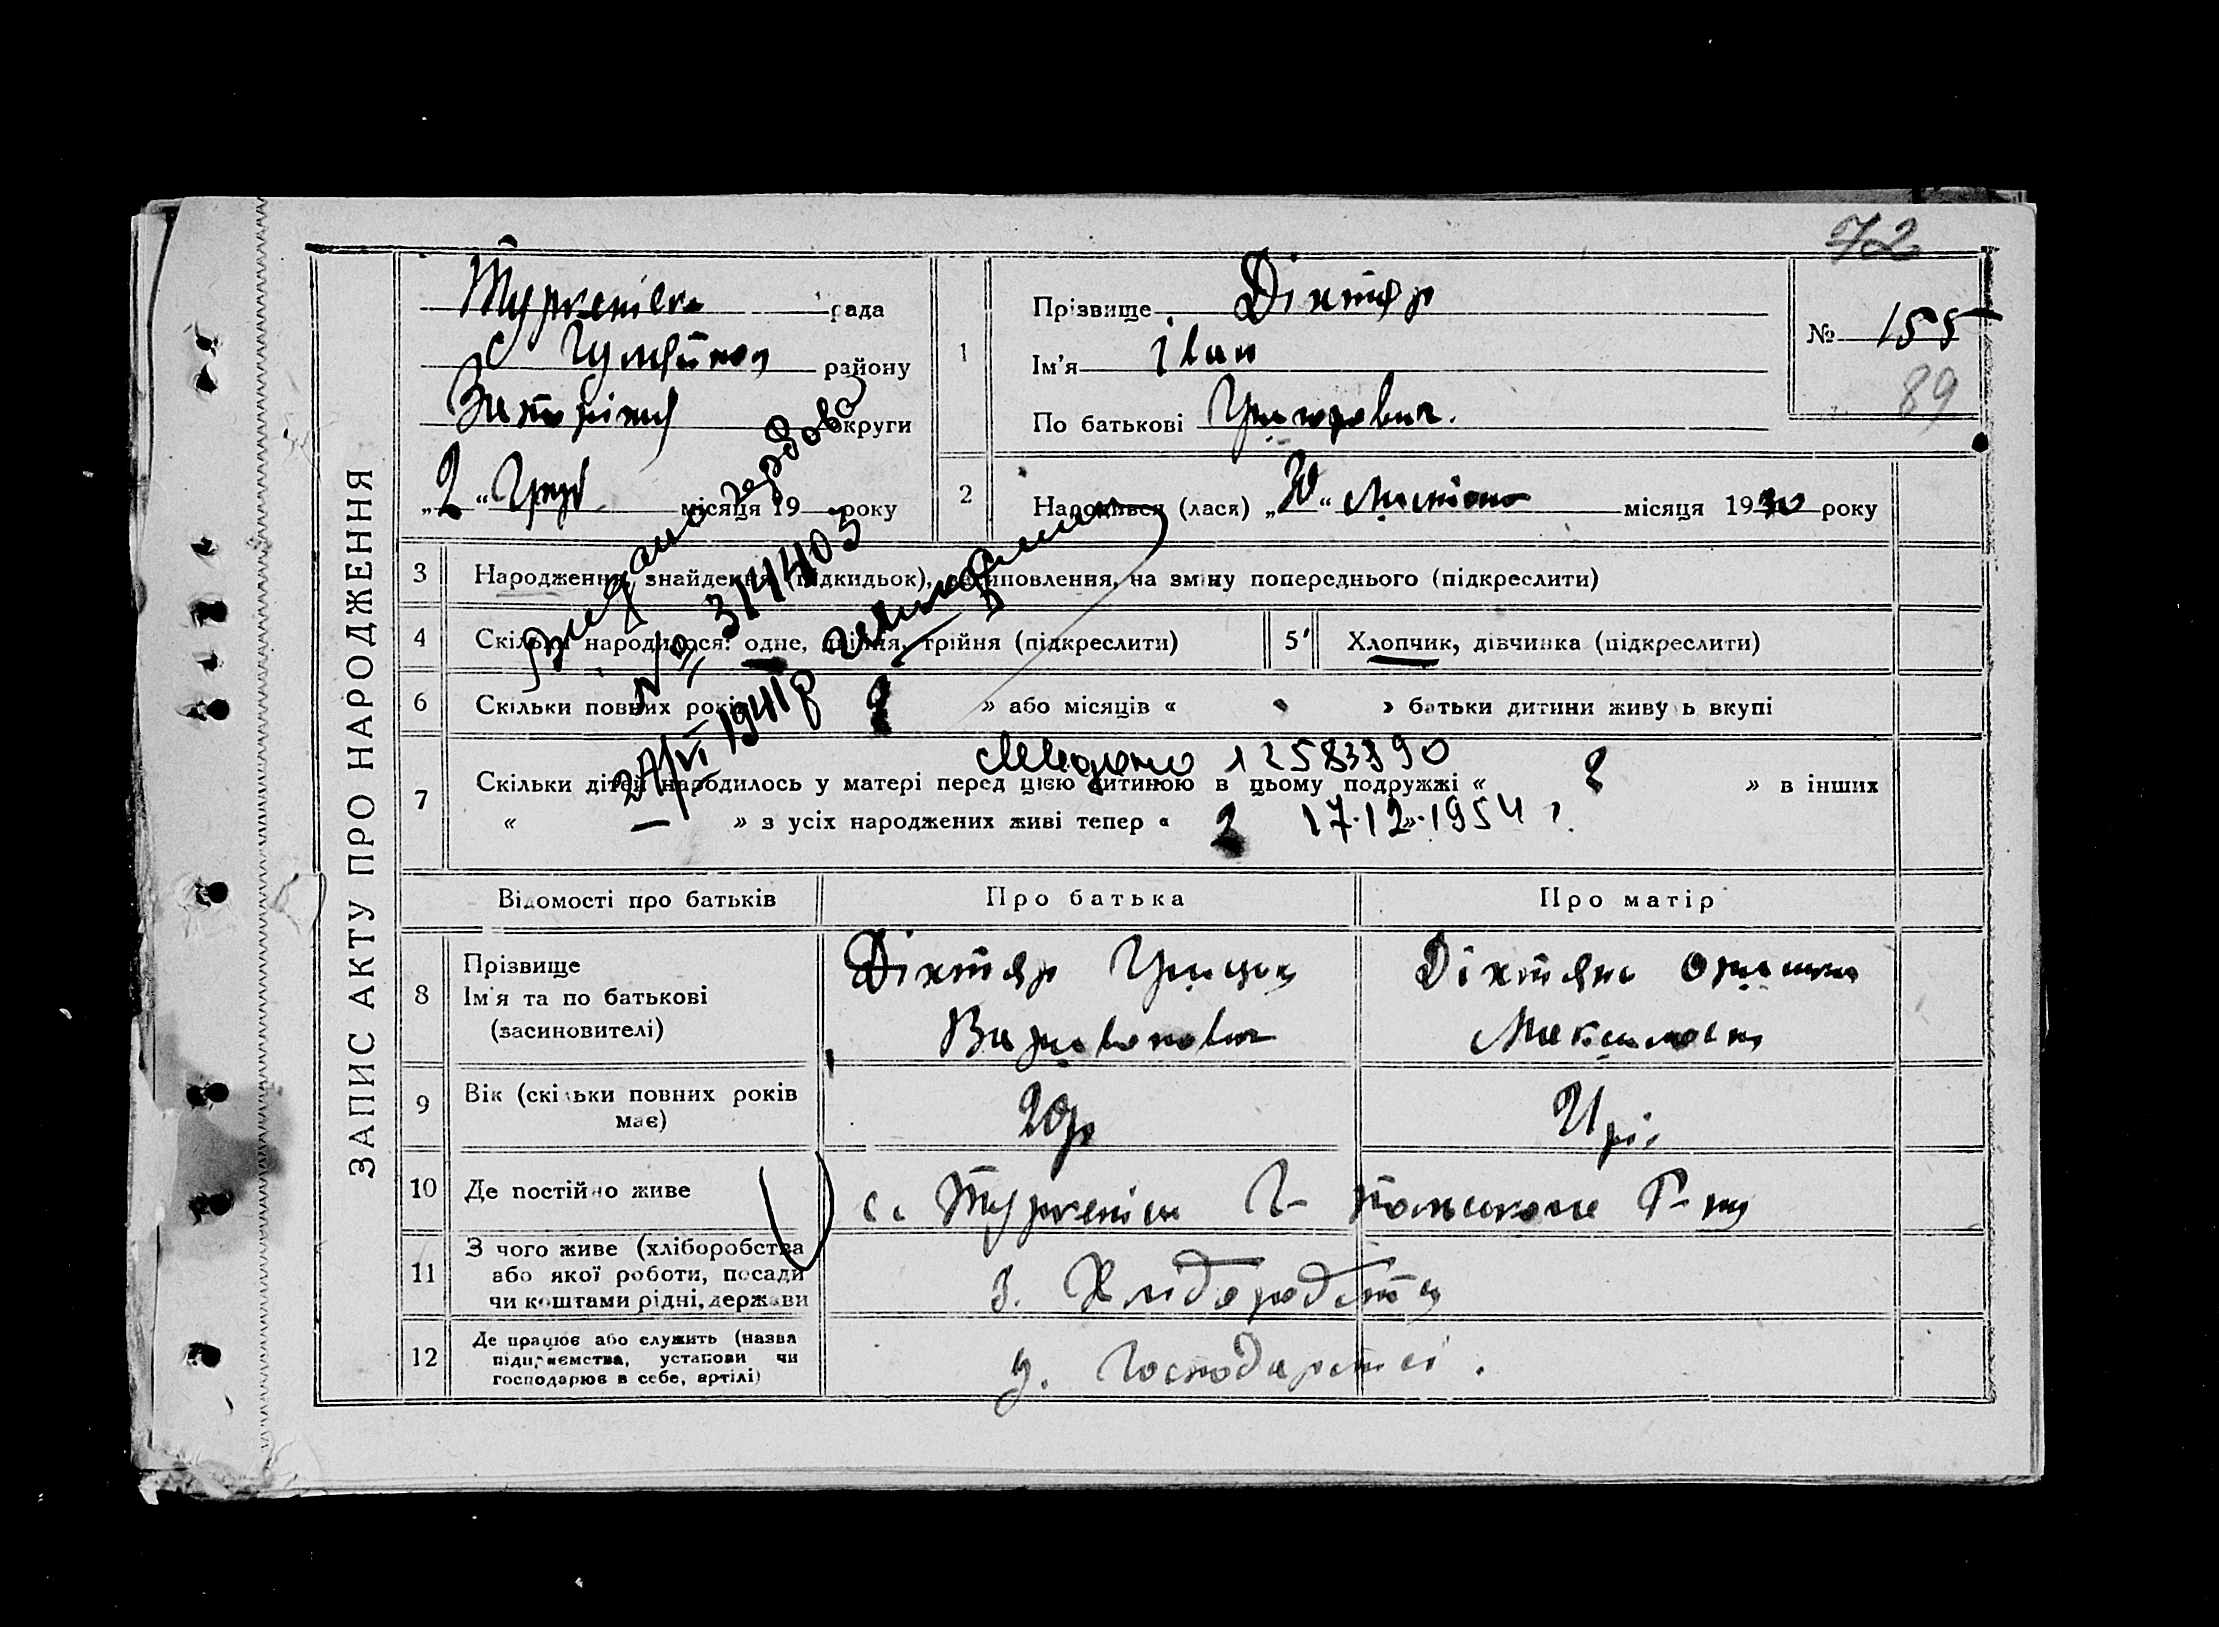 72
рада
району
округи
"2" Груд. місяця 19 року
1
Прізвище Діхтяр
Ім'я Іван
По батькові Григорович.
№ 155
89
2
Народився (лася) „30“ Листопа місяця 1930 року
Видано
№ 314403
27/VI 1941 р
ЗАПИС АКТУ ПРО НАРОДЖЕННЯ
3 Народження, знайдення (підкидьок), усиновлення, на зміну попереднього (підкреслити)
4 Скільки народилося: одне, двійня, трійня (підкреслити)
5 Хлопчик, дівчинка (підкреслити)
6 Скільки повних років » або місяців « » батьки дитини живуть вкупі
12583390
7 Скільки дітей народилось у матері перед цією дитиною в цьому подружжі « » в інших
« — » з усіх народжених живі тепер « 2 17.12.1954 г.
Відомості про батьків
Про батька
Про матір
8
Прізвище
Ім'я та по батькові
(засиновителі)
Діхтяр Грицко
Діхтяр
Максимовна
9
Вік (скільки повних років
має)
20р
21 рі.
10 Де постійно живе
с. Туркенівка
11
З чого живе (хліборобства
або якої роботи, посади
чи коштами рідні, держави
з. Хліборобства
12
Де працює або служить (назва
підприємства, установи чи
господарює в себе, артілі)
у. Господарстві.